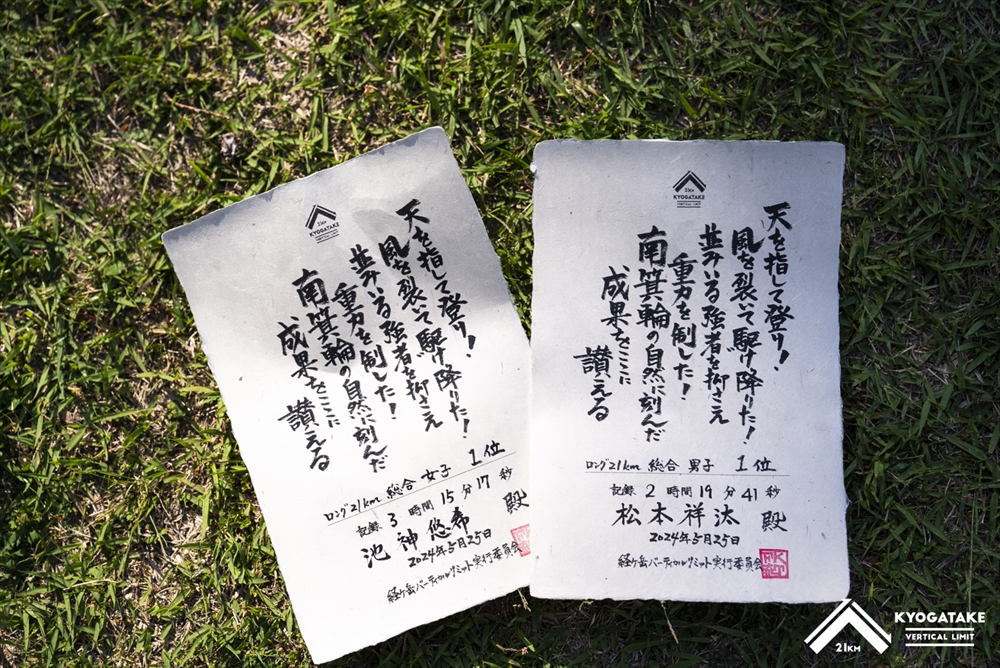 21KM
KYOGATAKE
VERTICAL LIMIT
天を指して登り!
風を裂いて駆け降りた!
並みいる強者を抑さえ
重力を制した!
南箕輪の自然に刻んだ
成果をここに
讃える
ロング21km 総合 女子 1位
記録 3 時間 15 分 17 秒
池神 悠希 殿
2024年5月25日
経ヶ岳バーティカルリミット実行委員会
21KM
KYOGATAKE
VERTICAL LIMIT
天を指して登り!
風を裂いて駆け降りた!
並みいる強者を抑さえ
重力を制した!
南箕輪の自然に刻んだ
成果をここに
讃える
ロング21km 総合 男子 1位
記録 2 時間 19 分 41 秒
松本祥汰 殿
2024年5月25日
経ヶ岳バーティカルリミット実行委員会
21KM
KYOGATAKE
VERTICAL LIMIT